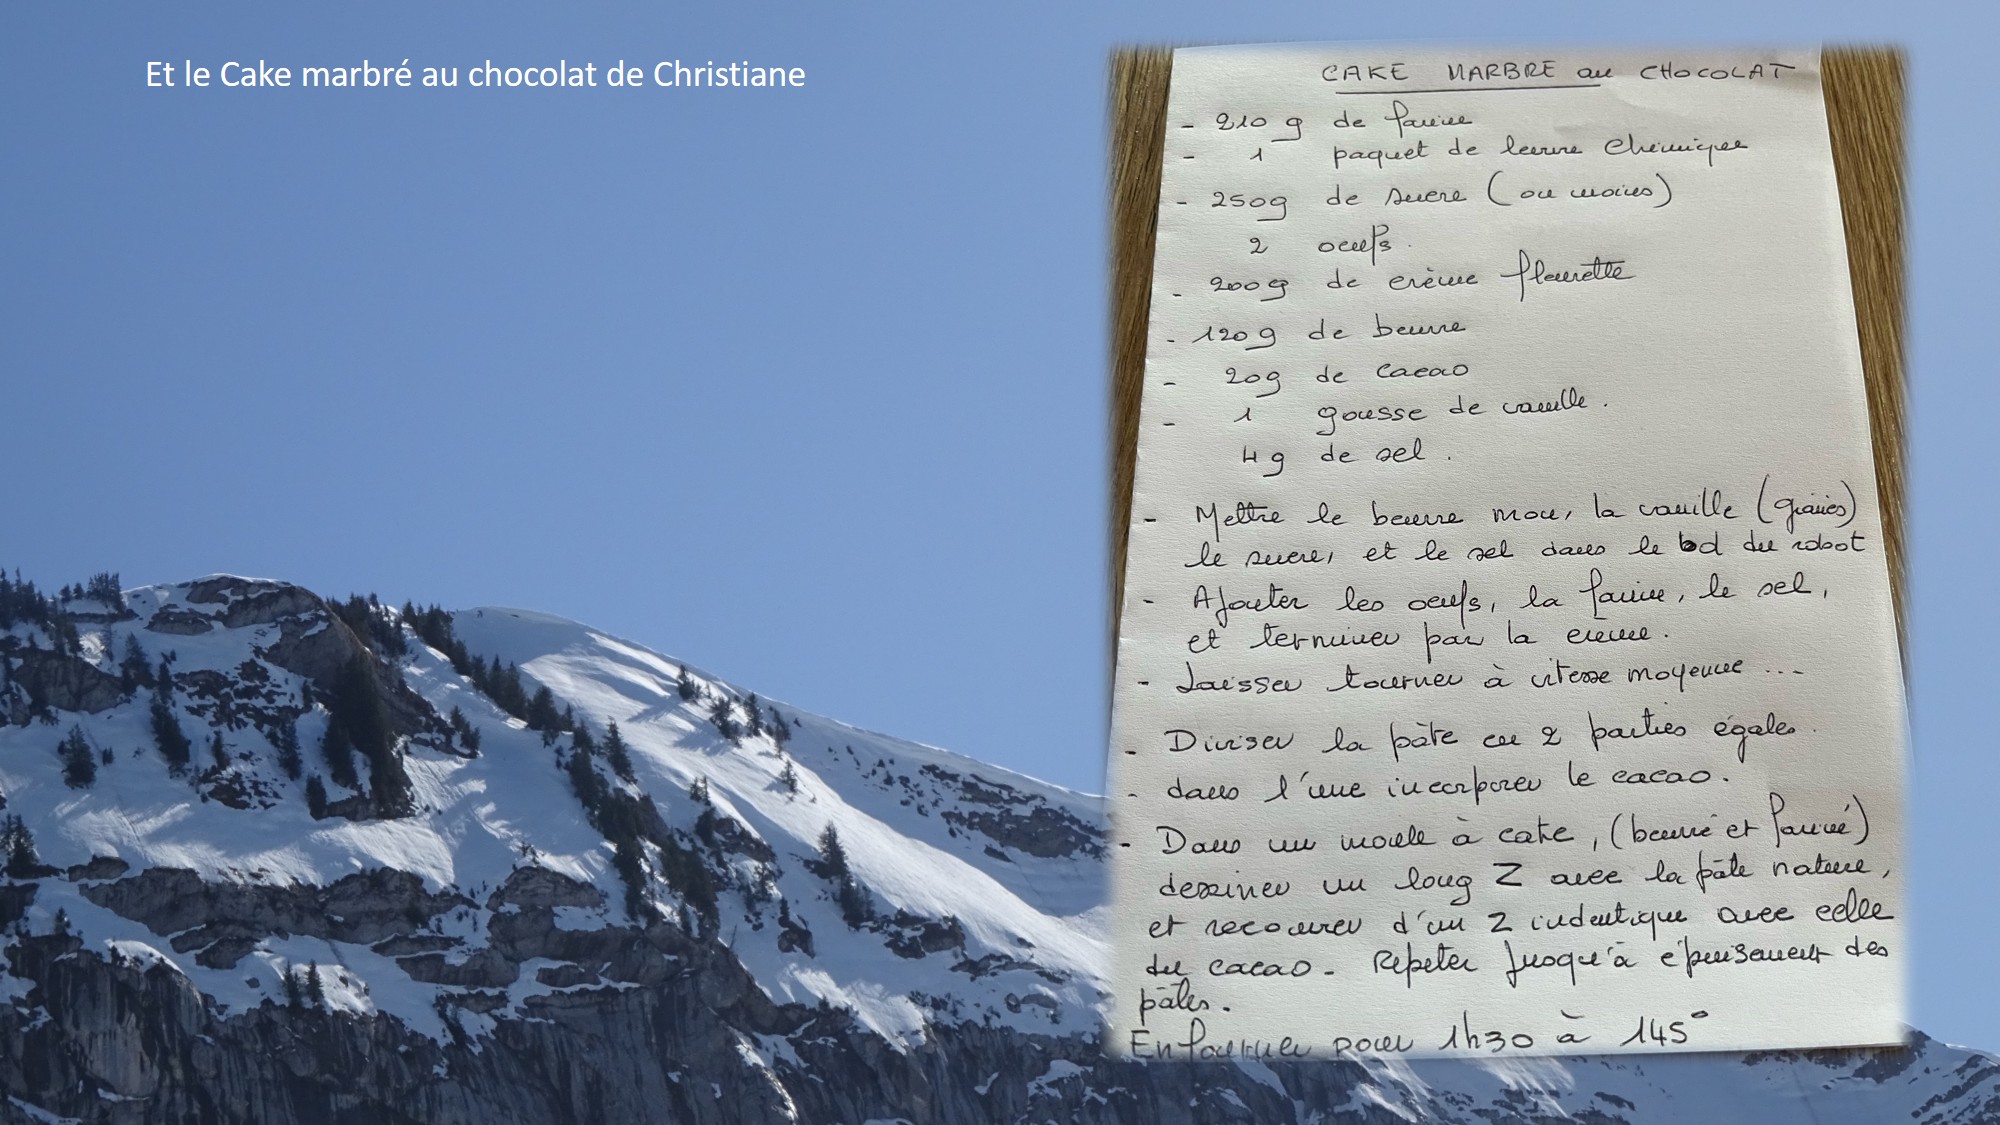 Et le Cake marbré au chocolat de Christiane
CAKE MARBRE au CHOCOLAT
- 210 g de farine
- 1 paquet de levure chimique
- 250g de sucre (ou moins)
2 oeufs.
- 200g de crème fleurette
- 120g de beurre
- 20g de cacao
- 1 gousse de vanille.
4g de sel.
- Mettre le beurre mou, la vanille (graines)
le sucre, et le sel dans le bol du robot
- Ajouter les oeufs, la farine, le sel,
et terminer par la crème.
- Laisser tourner à vitesse moyenne ...
- Diviser la pâte en 2 parties égales.
- dans l'une incorporer le cacao.
- Dans un moule à cake, (beurré et fariné)
dessiner un long Z avec la pâte nature,
et recouvrer d'un Z indentique avec celle
du cacao - Repeter jusqu'à épuisement des
pâtes.
Enfourner pour 1h30 à 145°